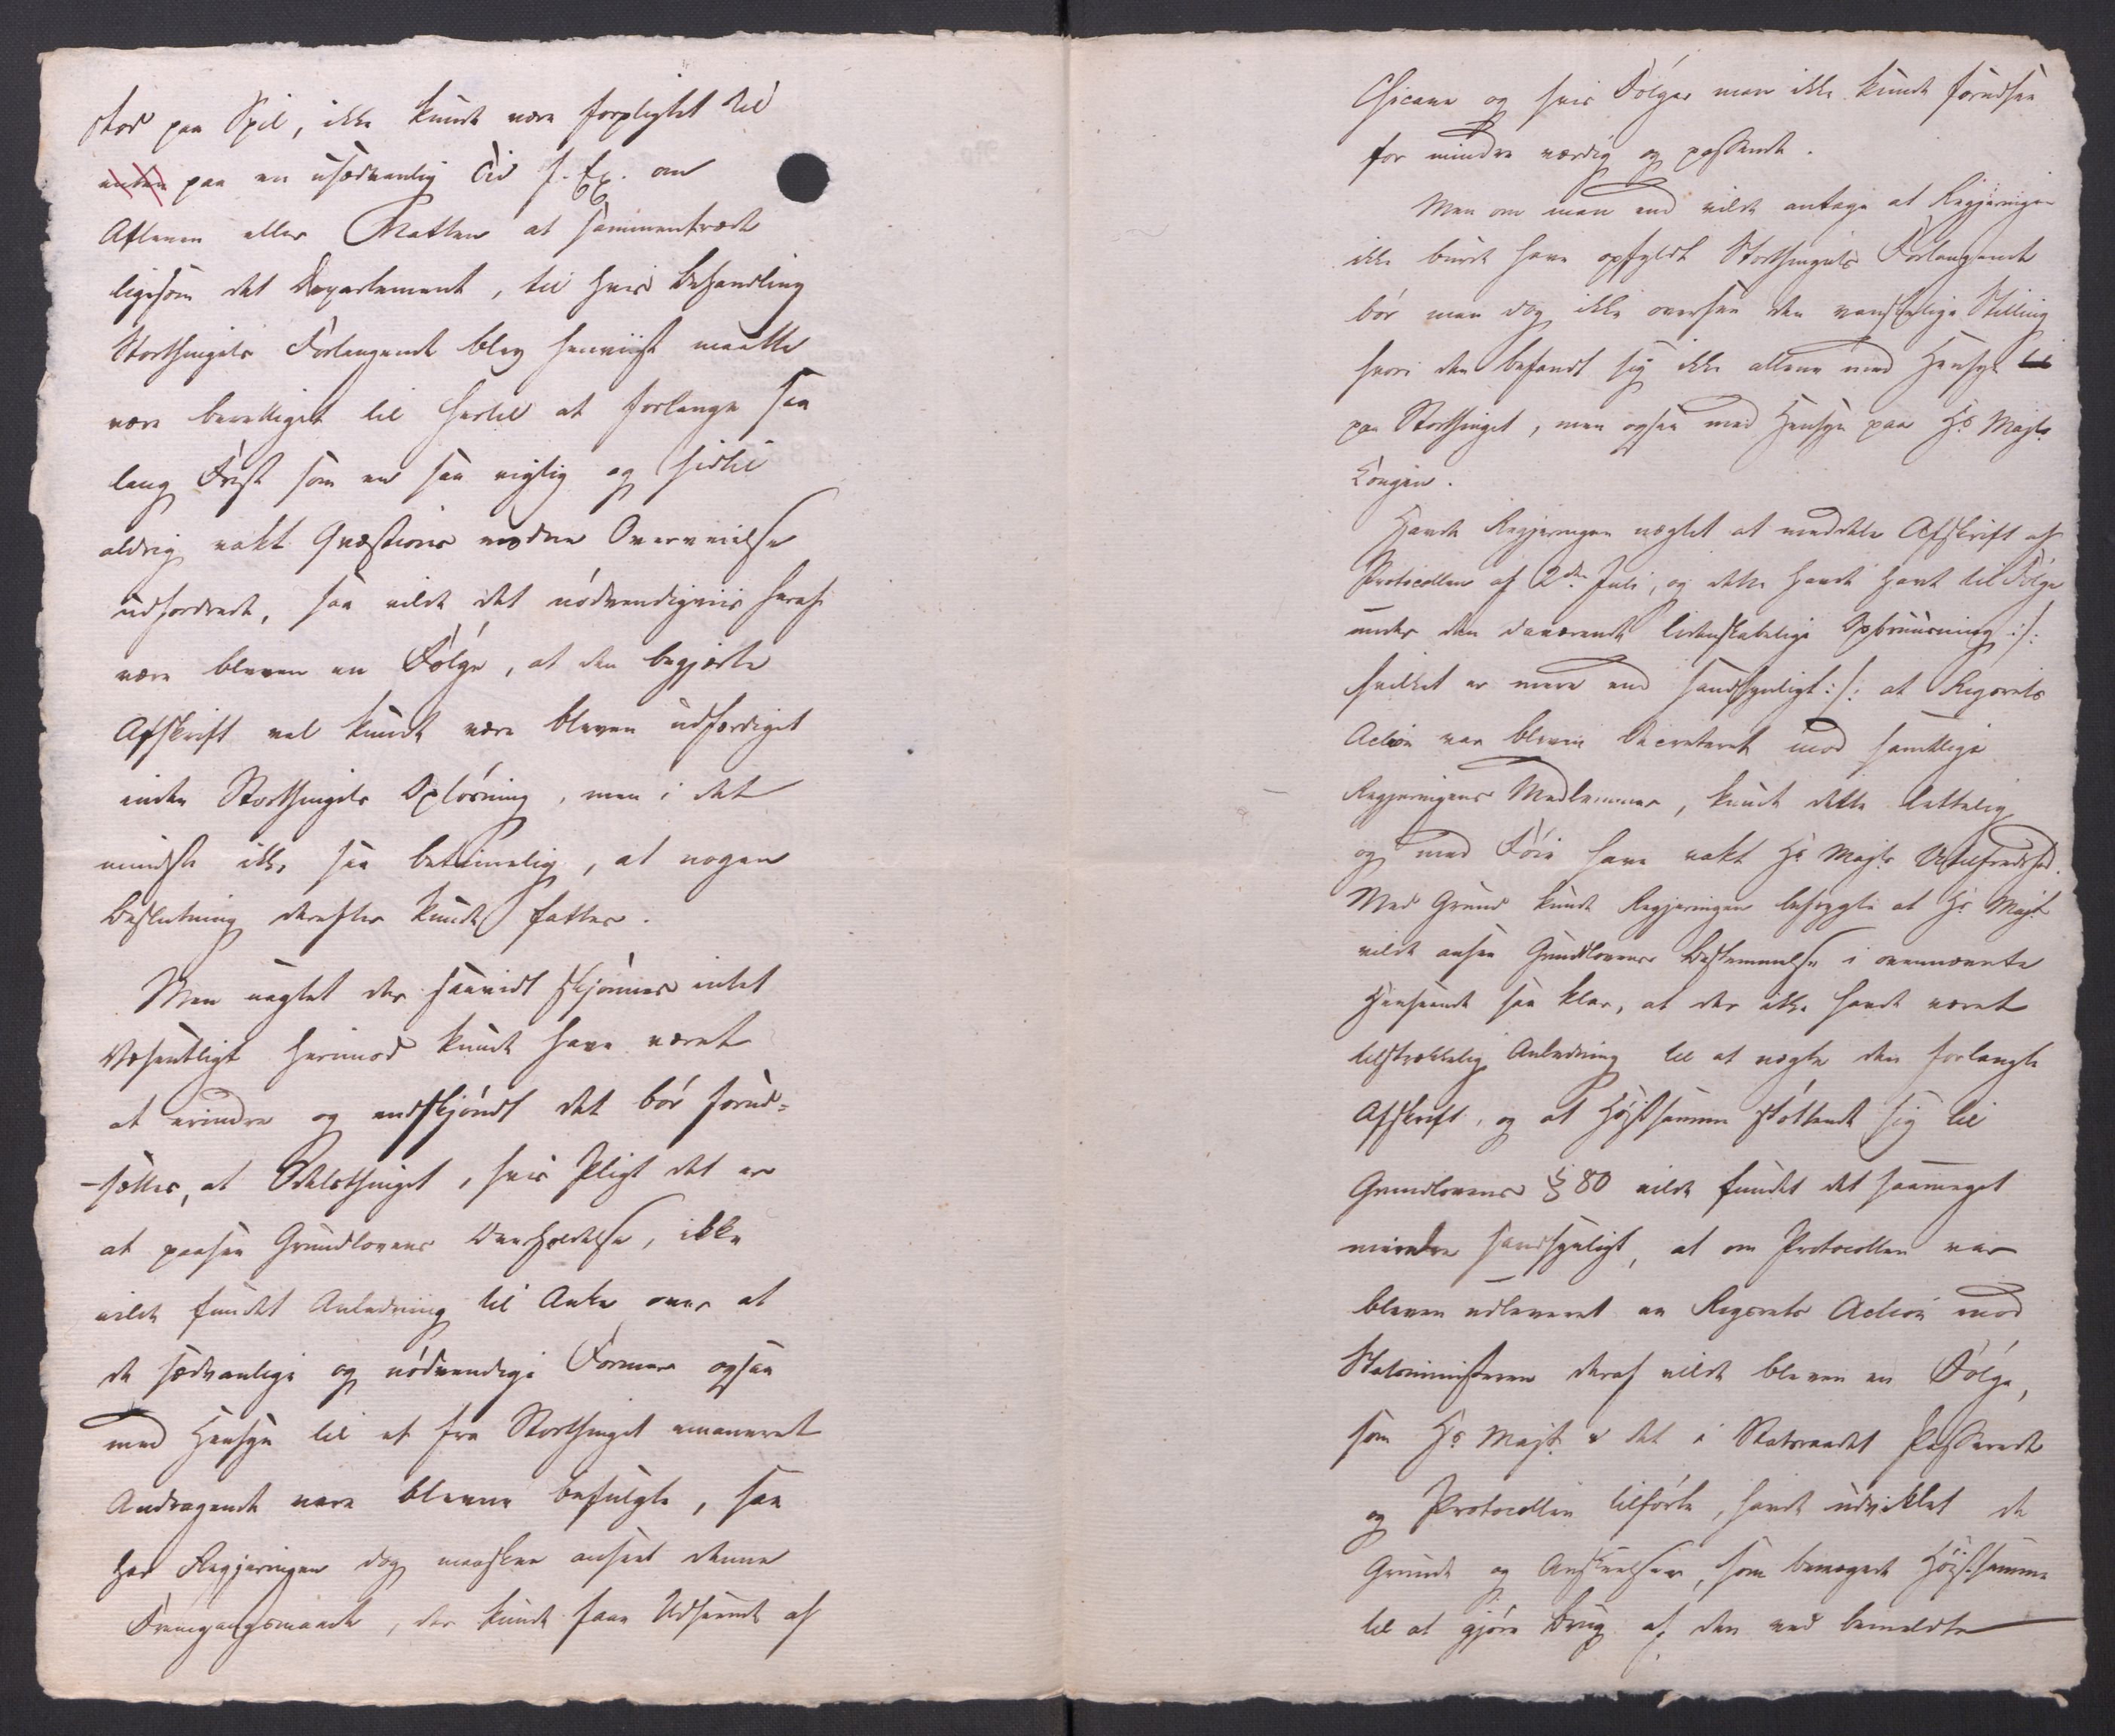 stod paa Spil, ikke kunde være forpligtet til
enten paa en usædvanlig Tid f. Ex. om
Aftenen eller Natten at sammentræde
ligesom det Departement, til hvis Behandling
Storthingets Forlangende blev henviist maatte
være berettiget til hertil at forlange saa
lang Frist som en saa vigtig og hidtil
aldrig vakt Qvæstions modne Overveielse
udfordrede, saa vilde det nødvendigviis heraf
være bleven en Følge, at den begjærte
Afskrift vel kunde være bleven udfærdiget
inden Storthingets Opløsning, men i det
mindste ikke saa betimelig, at nogen
Beslutning derefter kunde fattes.
Men uagtet der saavidt skjønnes intet
Væsentligt herimod kunde have været
at erindre og endskjøndt det bør forud=
-sættes, at Odelsthinget, hvis Pligt det er
at paasee Grundlovens Overholdelse, ikke
vilde fundet Anledning til Anke over at
de sædvanlige og nødvendige Former ogsaa
med Hensyn til et fra Storthinget emaneret
Andragende vare blevne befulgte, saa
har Regjeringen dog maaskee anseet denne
Fremgangsmaade, der kunde faae Udseende af
Chicane og hvis Følger man ikke kunde forudsee
for mindre værdig og passende.
Men om man end vilde antage at Regjeringen
ikke burde have opfyldt Storthingets Forlangende
bør man dog ikke oversee den vanskelige Stilling
hvori den befandt sig ikke allene med Hensyn til
paa Storthinget, men ogsaa med Hensyn paa Hs Majts
Kongen.
Havde Regjeringen nægtet at meddele Afskrift af
Protocollen af 2den Juli, og dette havde havt til Følge
under den daværende lidenskabelige Opbruusning :/:
hvilket er mere end sandsynligt :/: at Rigsrets
Action var bleven decreteret mod samtlige
Regjeringens Medlemmer, kunde dette lettelig
og med Føie have vakt Hs Majts Utilfredshed.
Med Grund kunde Regjeringen befrygte at Hs Majt
vilde ansee Grundlovens Bestemmelse i ovennævnte
Henseende saa klar, at der ikke havde været
tilstrækkelig Anledning til at nægte den forlangte
Afskrift, og at Højstsamme støttende sig til
Grundlovens § 80 vilde fundet det saameget
mindre sandsynligt, at om Protocollen var
bleven udleveret en Rigsrets Action mod
Statsministeren deraf vilde bleven en Følge,
som Hs Majt. det i Statsraadet Passerede
og Protocollen tilførte, havde udviklet de
Grunde og Anskuelser, som bevægede Høistsamme
til at gjøre Brug af den ved bemeldte